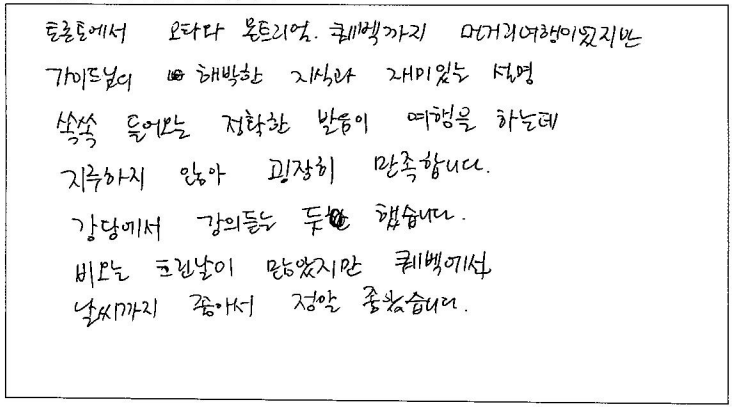 토론토에서 오타와 몬트리얼. 퀘벡까지 먼거리여행이였지만
가이드님의 해박한 지식과 재미있는 설명
쏙쏙 들어오는 정확한 발음이 여행을 하는데
지루하지 않아 굉장히 만족합니다.
강당에서 강의듣는 듯 했습니다.
비오는 흐린날이 많았지만 퀘벡에서,
날씨까지 좋아서 정말 좋았습니다.